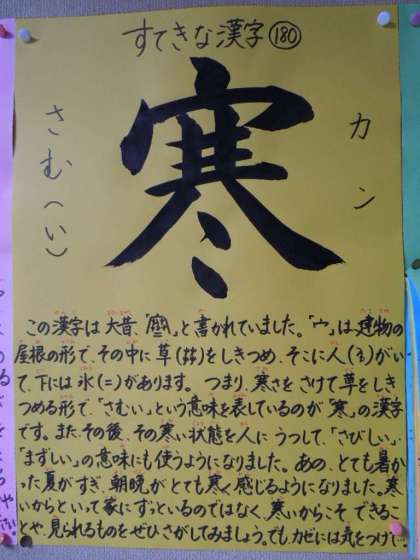 すてきな漢字 180
寒
カン
さむ(い)
この漢字は大昔、「」と書かれていました。「宀」は、建物の
屋根の形で、その中に草(茻)をしきつめ、そこに人()がい
て、下には氷(二)があります。つまり、寒さをさけて草をしき
つめる形で、「さむい」という意味を表しているのが「寒」の漢字
です。また、その後、その寒い状態を人にうつして、「さびしい」・
「まずしい」の意味にも使うようになりました。あの、とても暑か
った夏がすぎ、朝晩がとても寒く感じるようになりました。寒
いからといって家にずっといるのではなく、寒いからこそできるこ
とや、見られるものをぜひさがしてみましょう。でも、カゼには気をつけて…